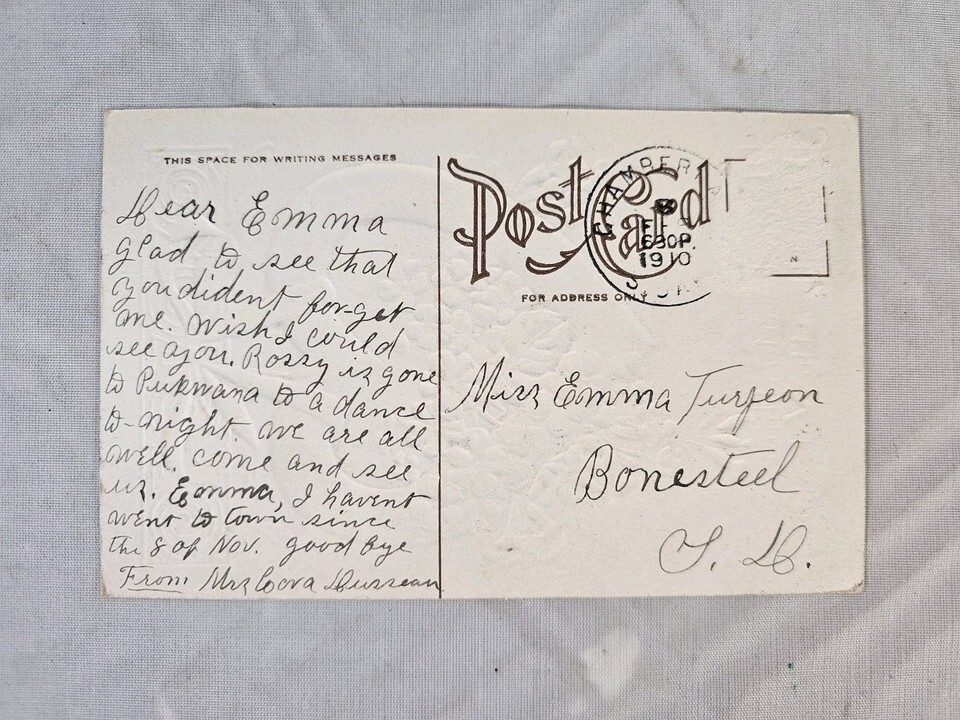 THIS SPACE FOR WRITING MESSAGES
Dear Emma
glad to see that
you dident for-get
me. wish I could
see you. Rossy is gone
to Pukwana to a dance
to-night. we are all
well. come and see
us. Emma, I havent
went to town since
the 8 of Nov. good bye
From Mrs Cora
Post Card
CHAMBER
8
630P.
1910
FOR ADDRESS ONLY
Miss Emma Turgeon
Bonesteel
S. D.